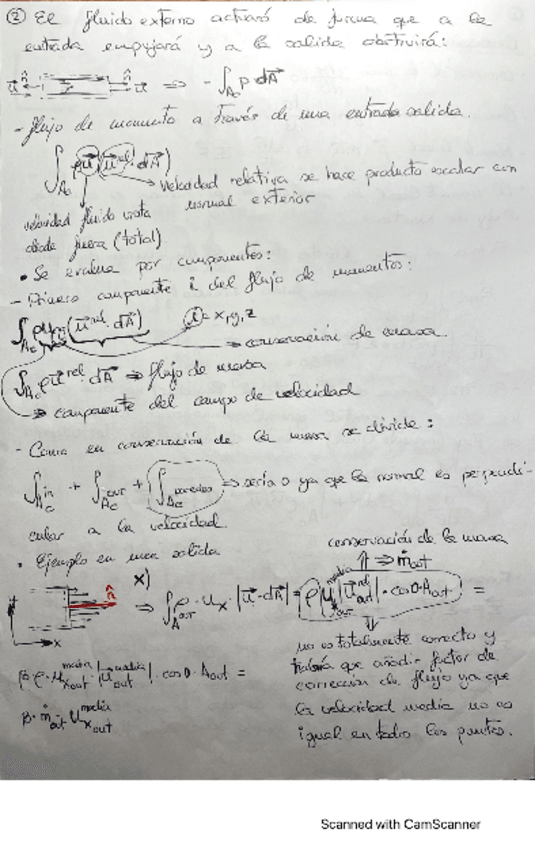 ② El fluido externo actuará de forma que a la
entrada empujará y a la salida obstruirá:
⇒ - ∫_{Ac} p·dA⃗
- Flujo de momento a través de una entrada salida.
∫_{Ac} ρu⃗(u⃗^{rel}·dA⃗)
velocidad relativa se hace producto escalar con
normal exterior
velocidad fluido vista
desde fuera (total).
• Se evalua por componentes:
- Primero componente i del flujo de momentos:
∫_{Ac} ρu_i(u⃗^{rel}·dA⃗) i = x, y, z
conservación de masa.
∫_{Ac} ρu⃗^{rel}·dA⃗ ⇒ flujo de masa
componente del campo de velocidad
- Como en conservación de la masa se divide:
∫_{Ac}^{in} + ∫_{Ac}^{out} + ∫_{Ac}^{paredes} ⇒ sería 0 ya que la normal es perpendi-
cular a la velocidad.
conservación de la masa
• Ejemplo en una salida
⇒ ṁout
n̂ x)
⇒ ∫_{Aout} ρ·u_x·|u⃗·dA⃗| = ρ u_{xout}^{media} |u⃗_{out}^{rel}|·cos0·Aout =
x
no es totalmente correcto y
habría que añadir factor de
corrección de flujo ya que
la velocidad media no es
igual en todos los puntos.
β·ρ·u_{xout}^{media}·|u_{out}^{media}|·cos0·Aout =
β·ṁout u_{xout}^{media}
Scanned with CamScanner